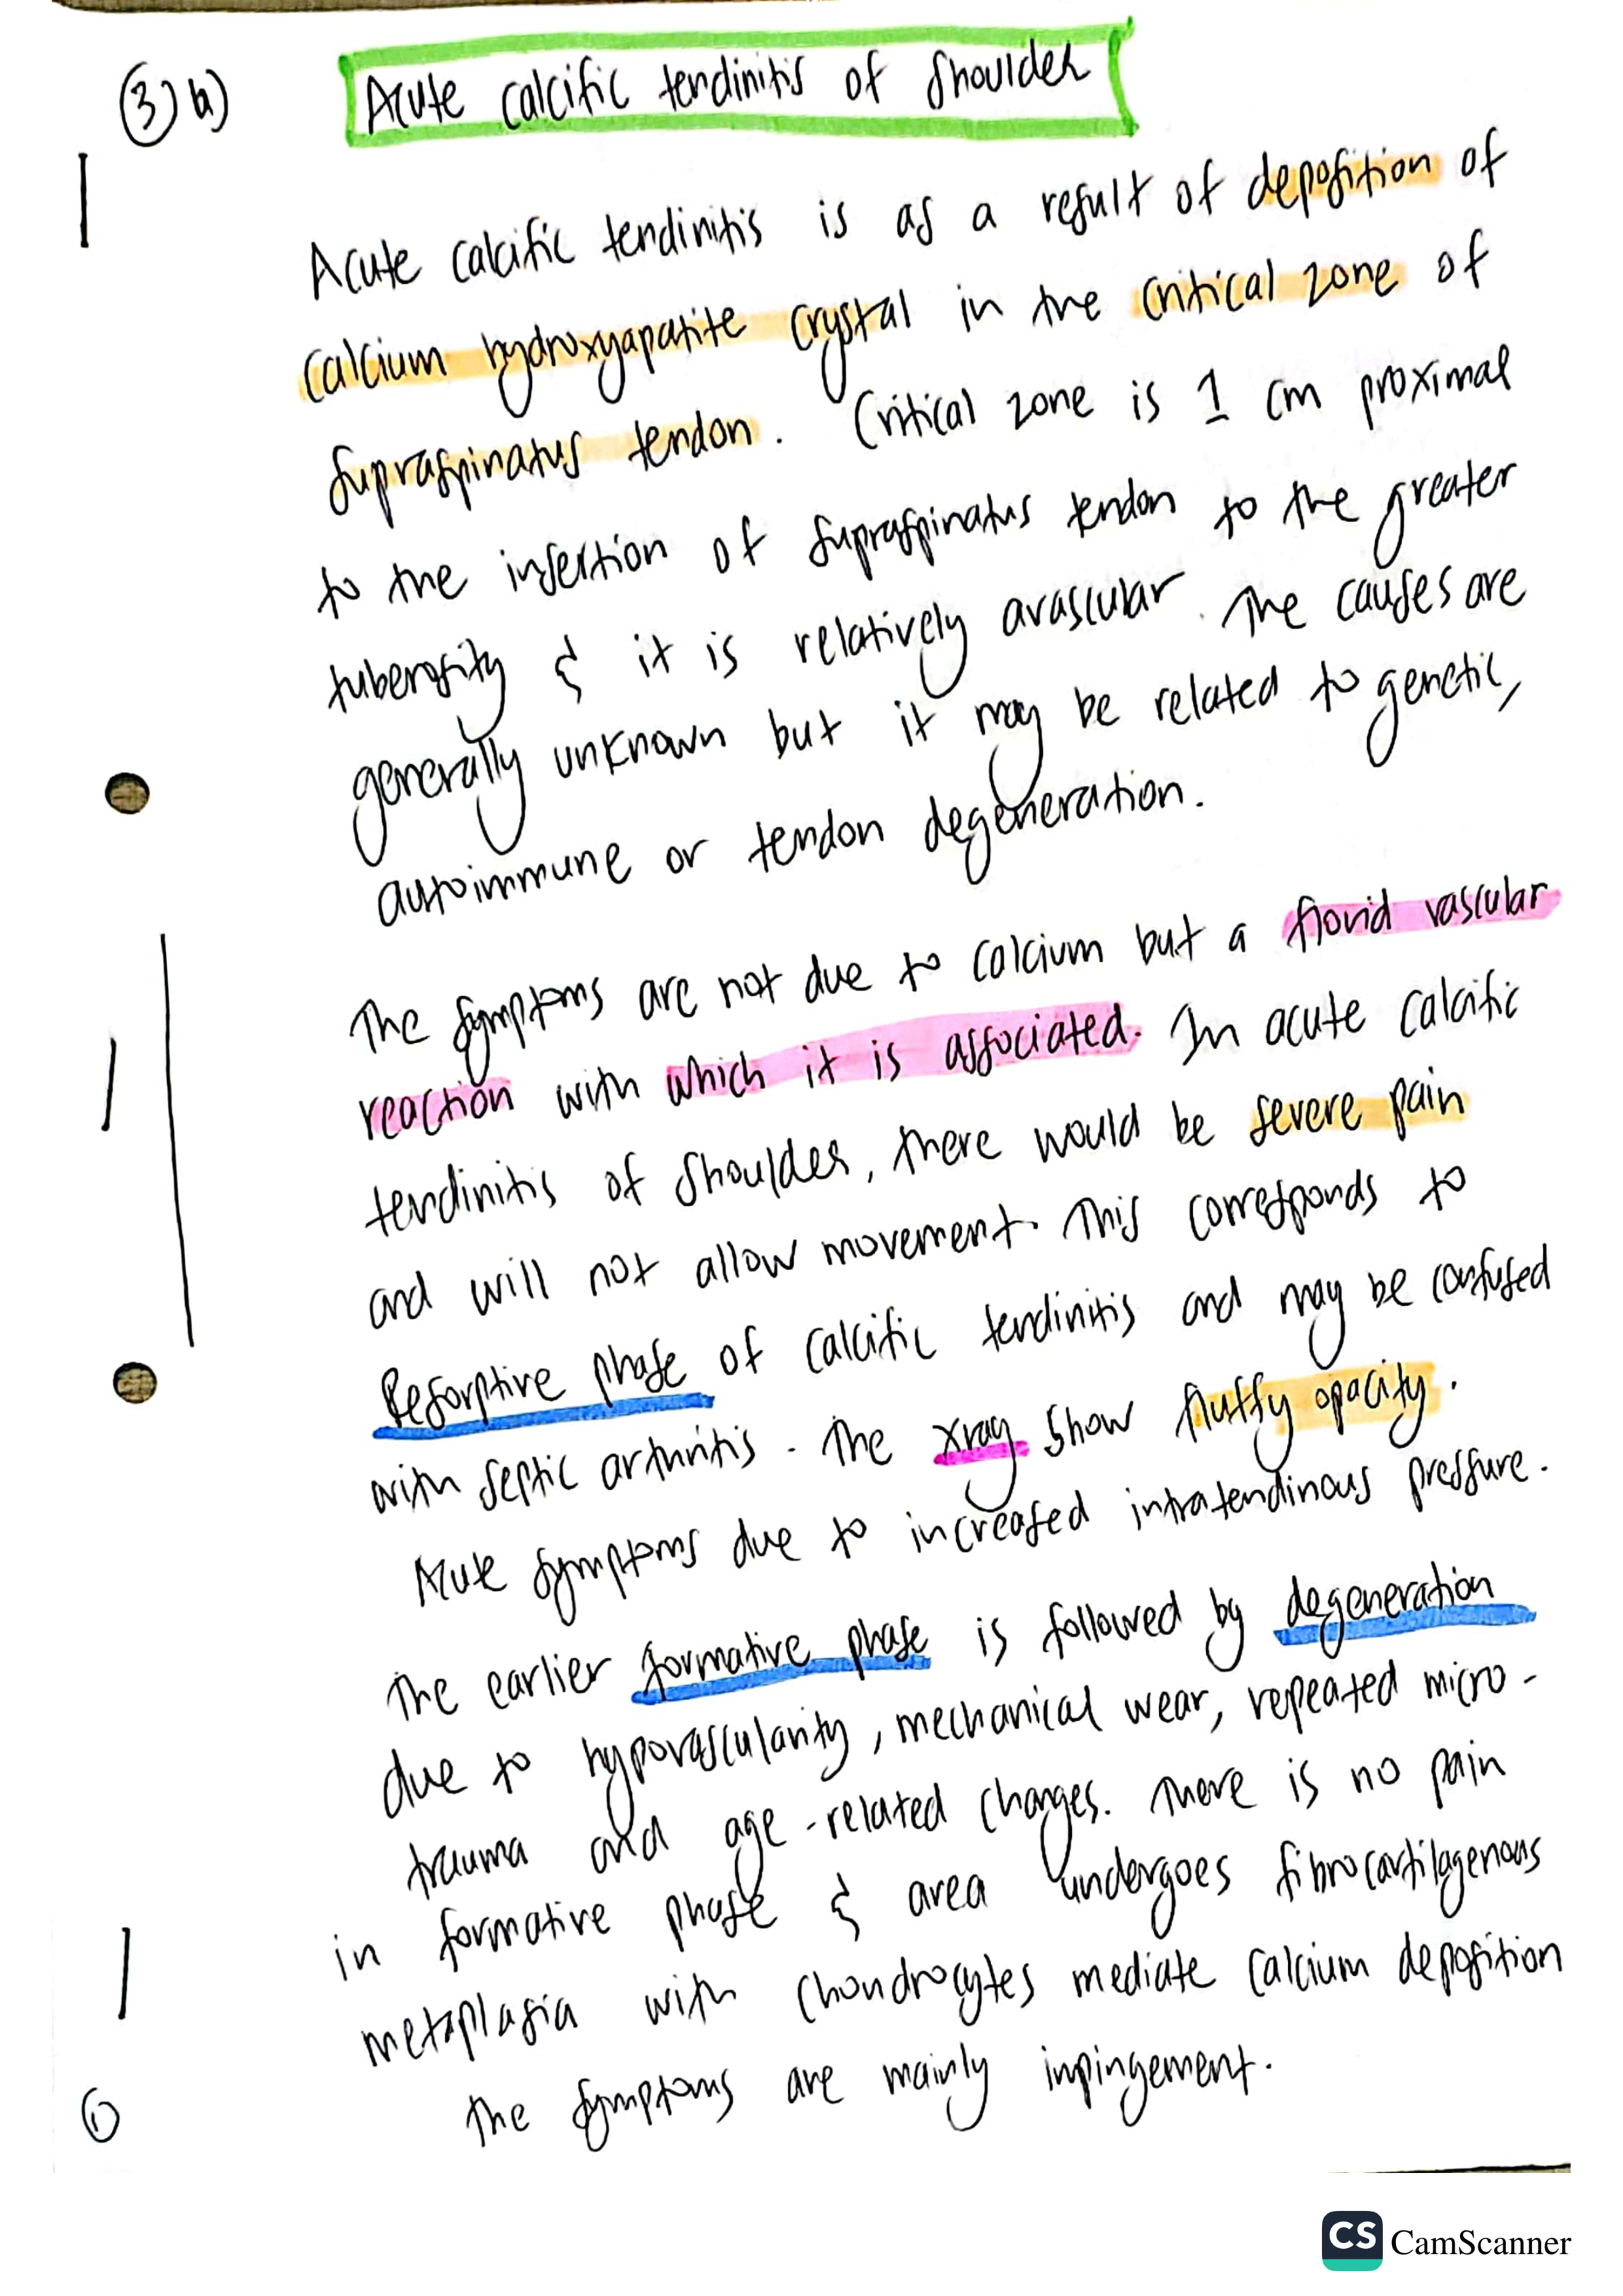 ③ a)
Acute calcific tendinitis of Shoulder
Acute calcific tendinitis is as a result of deposition of
calcium hydroxyapatite crystal in the critical zone of
supraspinatus tendon. Critical zone is 1 cm proximal
to the insertion of supraspinatus tendon to the greater
tuberosity & it is relatively avascular. The causes are
generally unknown but it may be related to genetic,
autoimmune or tendon degeneration.
The symptoms are not due to calcium but a florid vascular
reaction with which it is associated. In acute calcific
tendinitis of shoulder, there would be severe pain
and will not allow movement. This corresponds to
Resorptive phase of calcific tendinitis and may be confused
with septic arthritis. The xray show fluffy opacity.
Acute symptoms due to increased intratendinous pressure.
The earlier formative phase is followed by degeneration
due to hypovascularity, mechanical wear, repeated micro-
trauma and age-related changes. There is no pain
in formative phase & area undergoes fibrocartilagenous
metaplasia with chondrocytes mediate calcium deposition
The symptoms are mainly impingement.
①
CS CamScanner